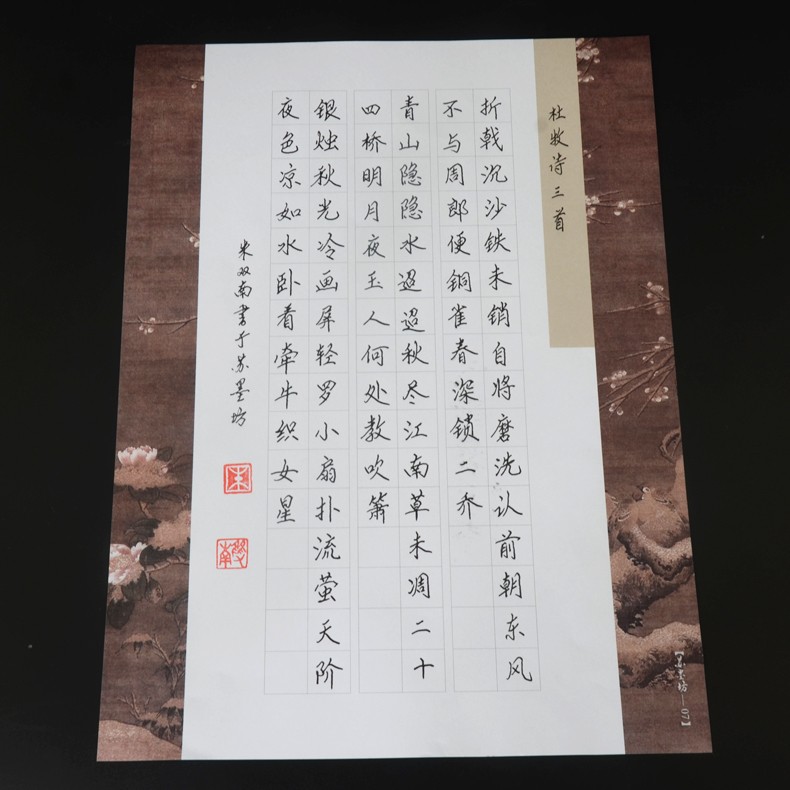 杜牧诗三首
折戟沉沙铁未销自将磨洗认前朝东风
不与周郎便铜雀春深锁二乔
青山隐隐水迢迢秋尽江南草未凋二十
四桥明月夜玉人何处教吹箫
银烛秋光冷画屏轻罗小扇扑流萤天阶
夜色凉如水卧看牵牛织女星
米双南书于苏墨坊
【苏墨坊—07】